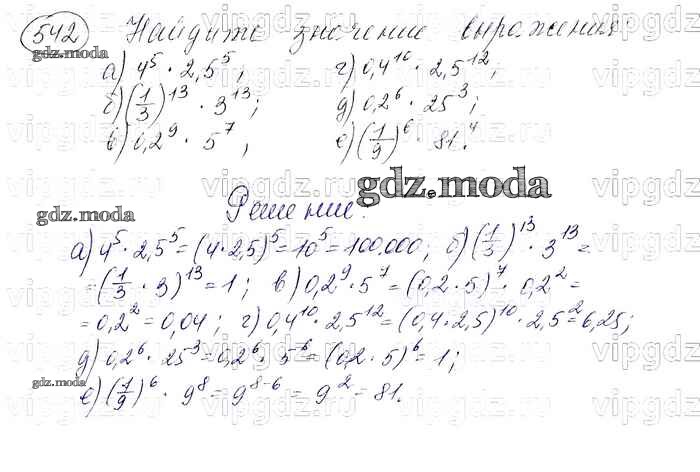 542 Найдите значение выражения:
gdz.moda
а) 4⁵ · 2,5⁵; г) 0,4¹⁰ · 2,5¹²;
б) (1/3)¹³ · 3¹³; д) 0,2⁶ · 25³;
в) 0,2⁹ · 5⁷; е) (1/9)⁶ · 81⁴.
gdz.moda
gdz.moda Решение:
а) 4⁵ · 2,5⁵ = (4 · 2,5)⁵ = 10⁵ = 100.000; б) (1/3)¹³ · 3¹³ =
= (1/3 · 3)¹³ = 1; в) 0,2⁹ · 5⁷ = (0,2 · 5)⁷ · 0,2² =
= 0,2² = 0,04; г) 0,4¹⁰ · 2,5¹² = (0,4 · 2,5)¹⁰ · 2,5² = 6,25;
д) 0,2⁶ · 25³ = 0,2⁶ · 5⁶ = (0,2 · 5)⁶ = 1;
gdz.moda
е) (1/9)⁶ · 9⁸ = 9⁸⁻⁶ = 9² = 81.
vipgdz.ru